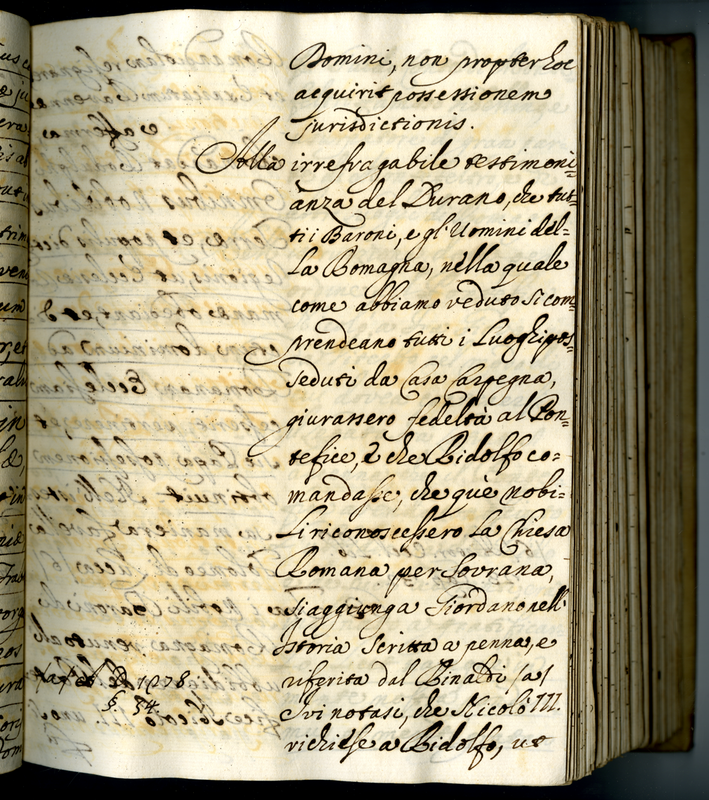 Domini, non propter hoc
acquirit possessionem
jurisdictionis.
Alla irrefragabile testimoni=
anza del Durano, che tut=
ti i Baroni, e gl'Uomini del=
la Romagna, nella quale
come abbiamo veduto si com
prendeano tutti i Luoghi pos=
seduti da Casa Carpegna,
giurassero fedeltà al Pon=
tefice, e che Ridolfo co=
mandasse, che què nobi=
li riconoscessero la Chiesa
Romana per Sovrana,
si aggiunga Giordano nell'
Istoria scritta a penna, e
riferita dal Rinaldi (a)
Ivi notasi, che Nicolò III.
richiese a Ridolfo, ut
(a) 1278
§. 54.